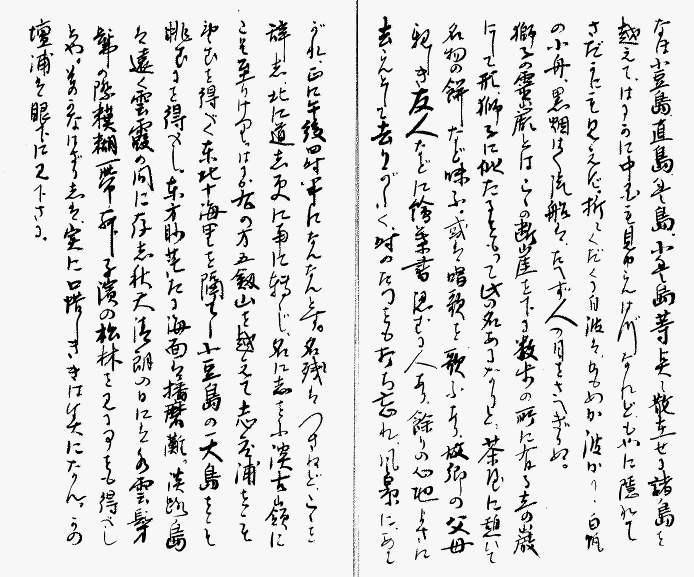 なほ小豆島、直島、豊島、小豊島等点々散在せる諸島を
越えて、はるかに中国を見るべけれども、かに隠れて
さだかにも見えず。折てくだくる白波か、かもめか波か、白帆
の小舟、黒烟はく汽船は、たへず人の目をさへぎりぬ。
獅子の霊巌とは、この断崖を下る数歩の所に有る立の巌
にして形獅子に似たるをもって此の名あるなりと、茶店に憩いて
名物の餅など味ふ。或は唱歌を歌ふあり、故郷の父母
親き友人などに絵葉書認むる人あり、餘りの心地よさに
去らんとして去りがたく、時のたつをも打ち忘れ、風景にあこ
がれ、正に午後四時半になんなんとす。名残はつきねど、ここを
辞し北に道し更に南に転じ、名にしおふ渓古嶺に
こそ至りけり。はるか右の方五剣山を越えて志度浦をこそ
望むを得べく東北十海里を隔てし小豆島の一大島をも
眺むるを得べし。東方眇茫たる海面は播磨灘、淡路島
は遠く雲霞の間に存し秋天清朗の日には水雲髣
髴の際模糊一帯舞子濱の松林を見るをも得べし
とや。その なきはず志は、実に口惜しききは美になん。かの
壇浦は眼下に見下さる。